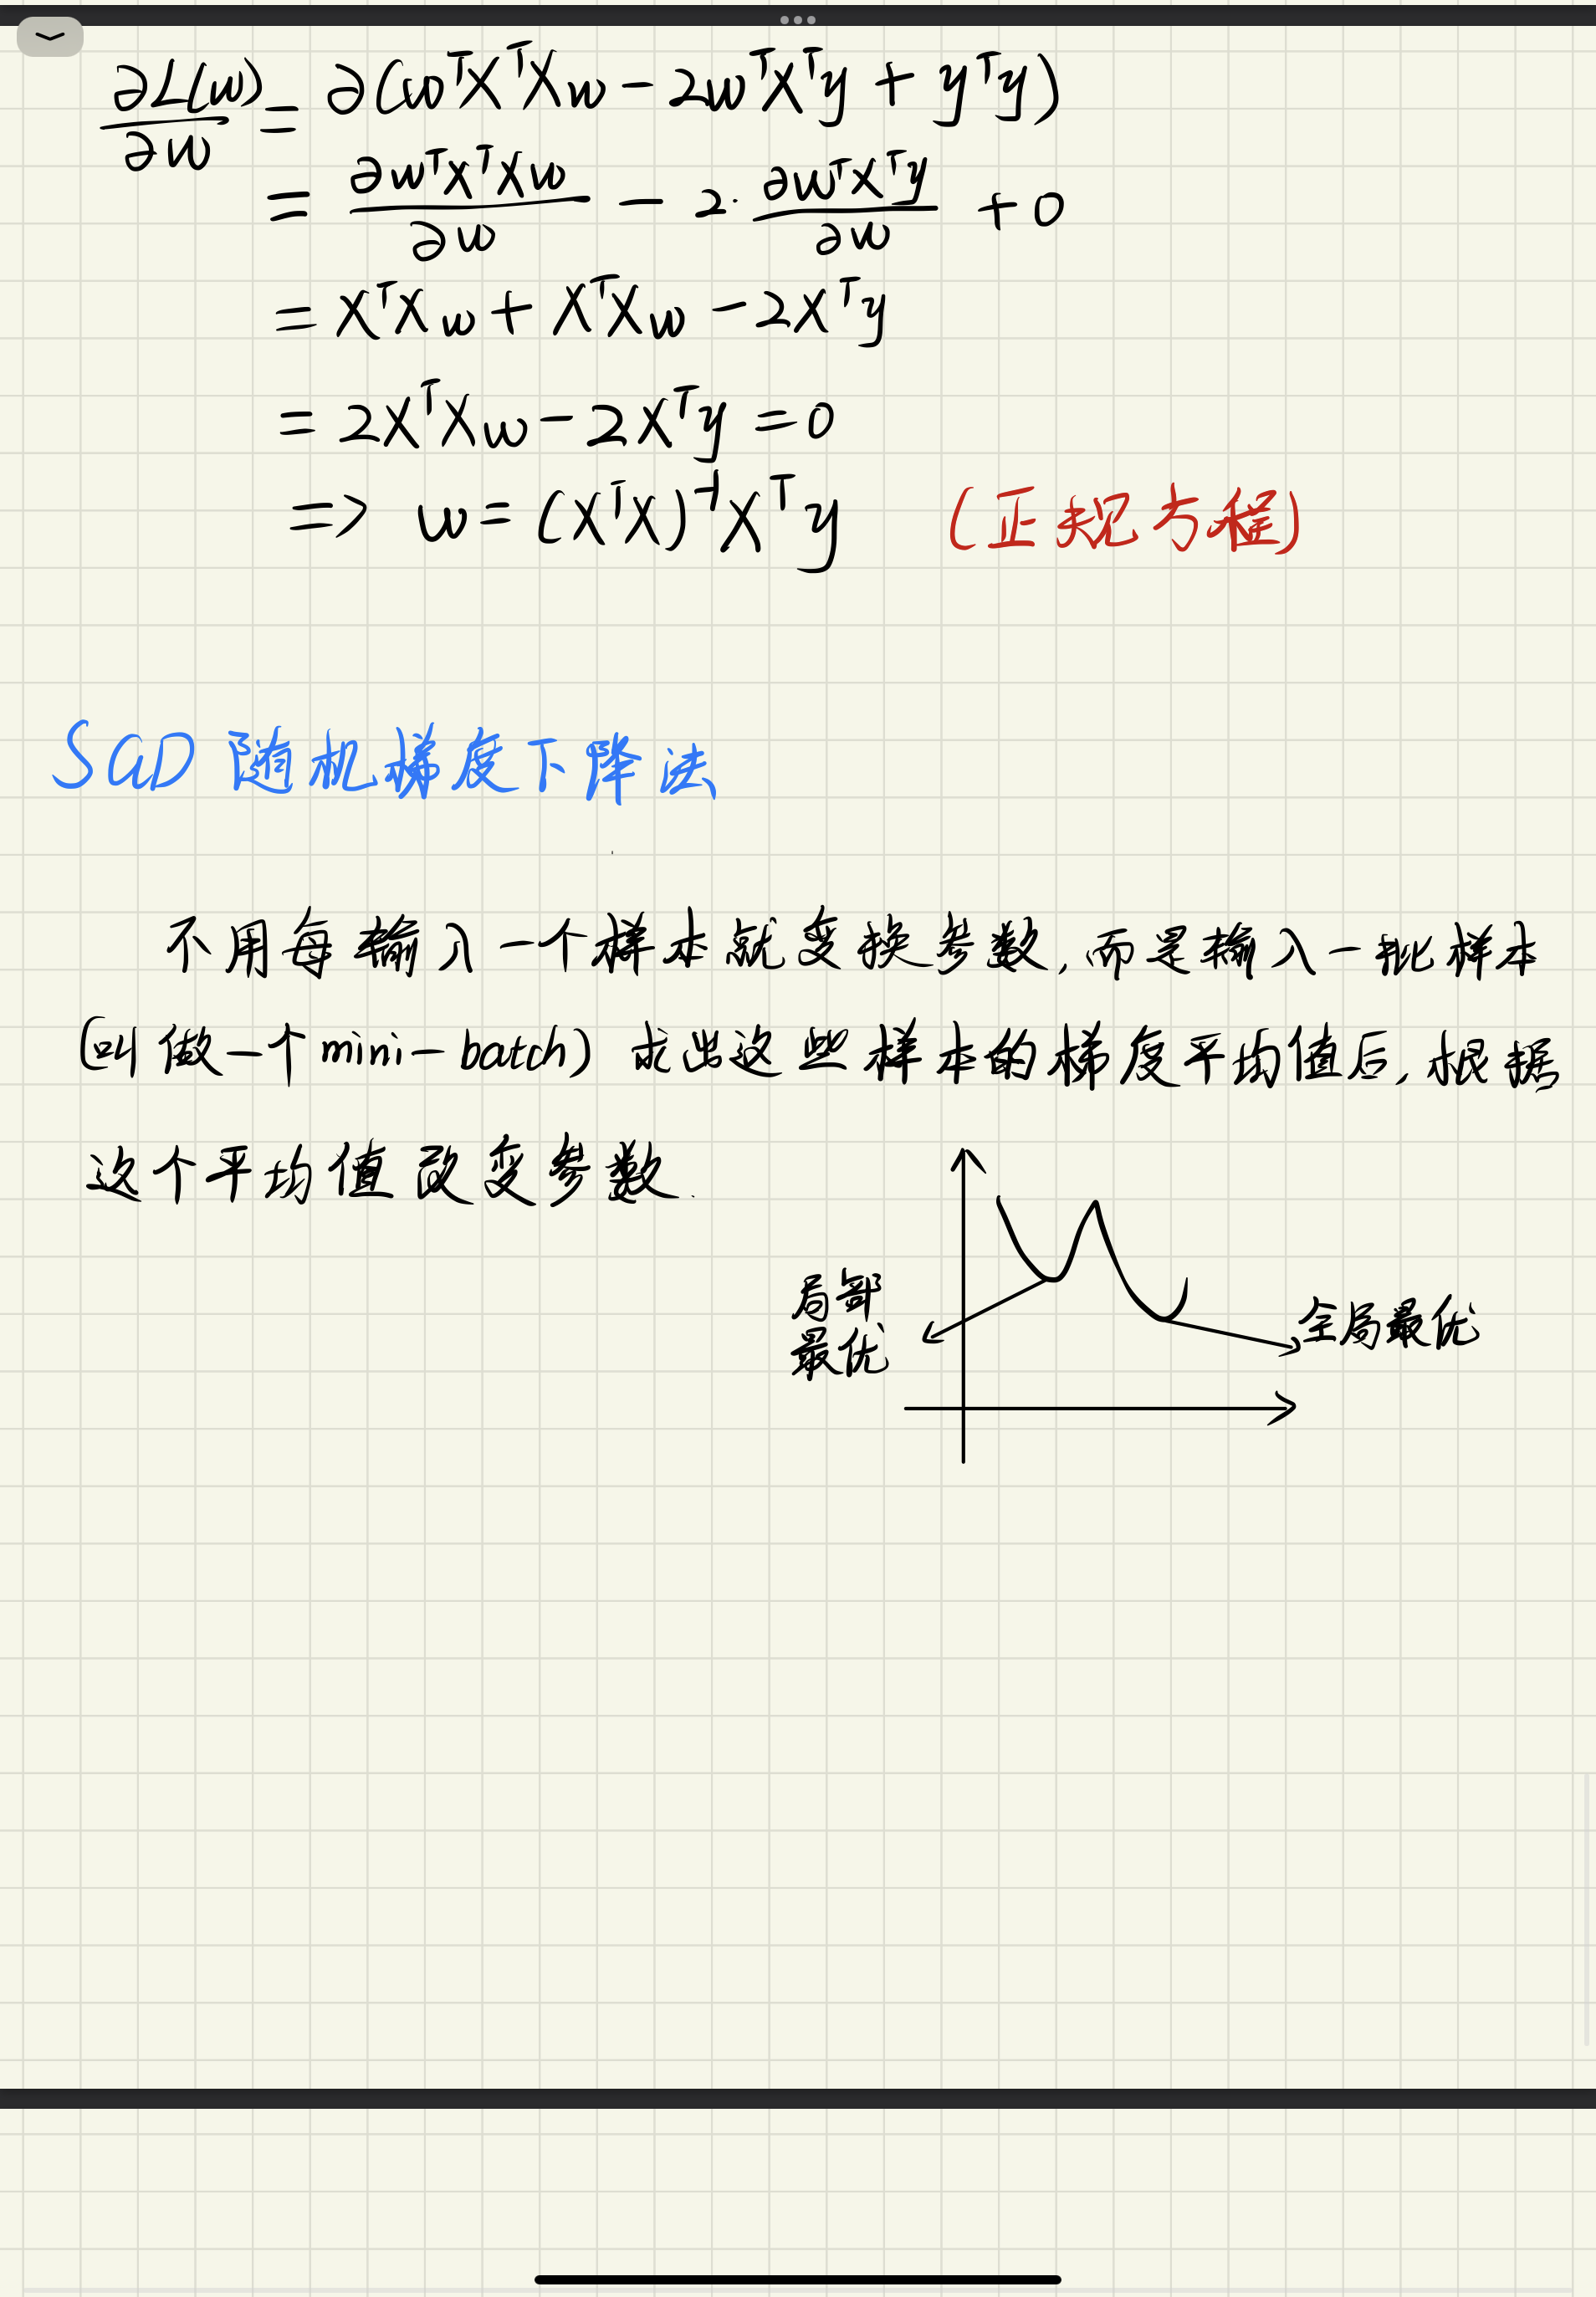 ∂L(w)/∂w = ∂(wᵀXᵀXw − 2wᵀXᵀy + yᵀy)
= ∂wᵀXᵀXw/∂w − 2·∂wᵀXᵀy/∂w + 0
= XᵀXw + XᵀXw − 2Xᵀy
= 2XᵀXw − 2Xᵀy = 0
=> w = (XᵀX)⁻¹Xᵀy (正规方程)
SGD 随机梯度下降法
不用每输入一个样本就变换参数,而是输入一批样本
(叫做一个mini-batch) 求出这些样本的梯度平均值后,根据
这个平均值改变参数.
局部
最优
全局最优